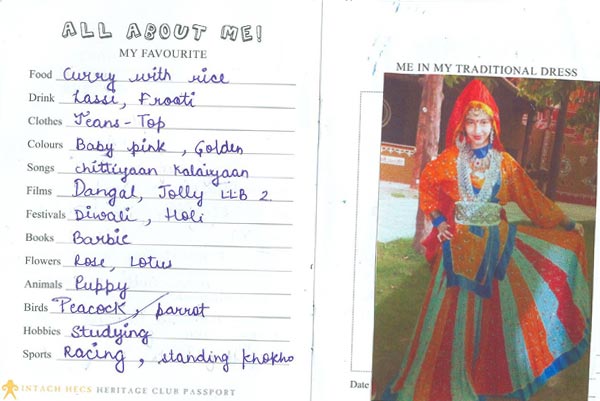 ALL ABOUT ME!
MY FAVOURITE
Food Curry with rice
Drink Lassi, Frooti
Clothes Jeans-Top
Colours Baby pink, Golden
Songs chittiyaan kalaiyaan
Films Dangal, Jolly LLB 2
Festivals Diwali, Holi
Books Barbie
Flowers Rose, Lotus
Animals Puppy
Birds Peacock, parrot
Hobbies Studying
Sports Racing, standing khokho
INTACH HECS HERITAGE CLUB PASSPORT
ME IN MY TRADITIONAL DRESS
Date